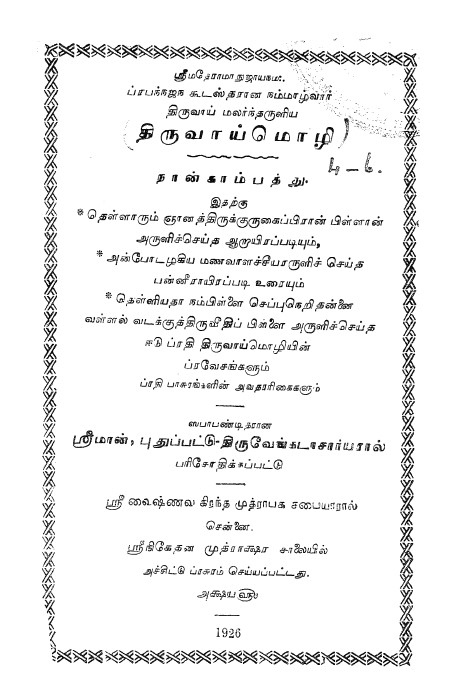 ஸ்ரீமதேராமாநுஜாயநம:
ப்ரபந்நஜந கூடஸ்தரான நம்மாழ்வார்
திருவாய் மலர்ந்தருளிய
(திருவாய்மொழி)
நான்காம்பத்து.
இதற்கு
*தெள்ளாரும் ஞானத்திருக்குருகைப்பிரான் பிள்ளான்
அருளிச்செய்த ஆறாயிரப்படியும்,
*அன்போடழகிய மணவாளச்சீயரருளிச் செய்த
பன்னீராயிரப்படி உரையும்
*தெள்ளியதா நம்பிள்ளை செப்புநெறிதன்னை
வள்ளல் வடக்குத்திருவீதிப் பிள்ளை அருளிச்செய்த
ஈடு ப்ரதி திருவாய்மொழியின்
ப்ரவேசங்களும்
ப்ரதி பாசுரங்களின் அவதாரிகைகளும்
ஸபாபண்டிதரான
ஸ்ரீமான், புதுப்பட்டு-திருவேங்கடாசார்யரால்
பரிசோதிக்கப்பட்டு
ஸ்ரீ வைஷ்ணவ கிரந்த முத்ராபக சபையாரால்
சென்னை.
ஸ்ரீநிகேதன முத்ராக்ஷர சாலையில்
அச்சிட்டு ப்ரசுரம் செய்யப்பட்டது.
அக்ஷய ௵
1926